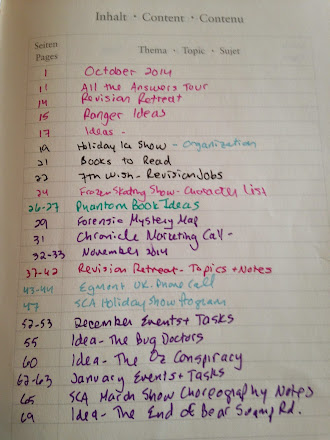 Inhalt · Content · Contenu
Seiten Pages Thema · Topic · Sujet
1 October 2014
11 All the Answers Tour
14 Revision Retreat
15 Ranger Ideas
17 Ideas -
19 Holiday Ice Show - Organization
21 Books to Read
22 7th Wish - Revision Jobs
24 Frozen Skating Show - Character List
26-27 Phantom Book Ideas
29 Forensic Mystery Map
31 Chronicle Marketing Call -
32-33 November 2014
37-42 Revision Retreat - Topics + Notes
43-44 Egmont UK. Phone Call
47 SCA Holiday Show Program
52-53 December Events + Tasks
55 Idea - The Bug Doctors
60 Idea - The Oz Conspiracy
62-63 January Events + Tasks
65 SCA March Show Choreography Notes
69 Idea - The End of Bear Swamp Rd.